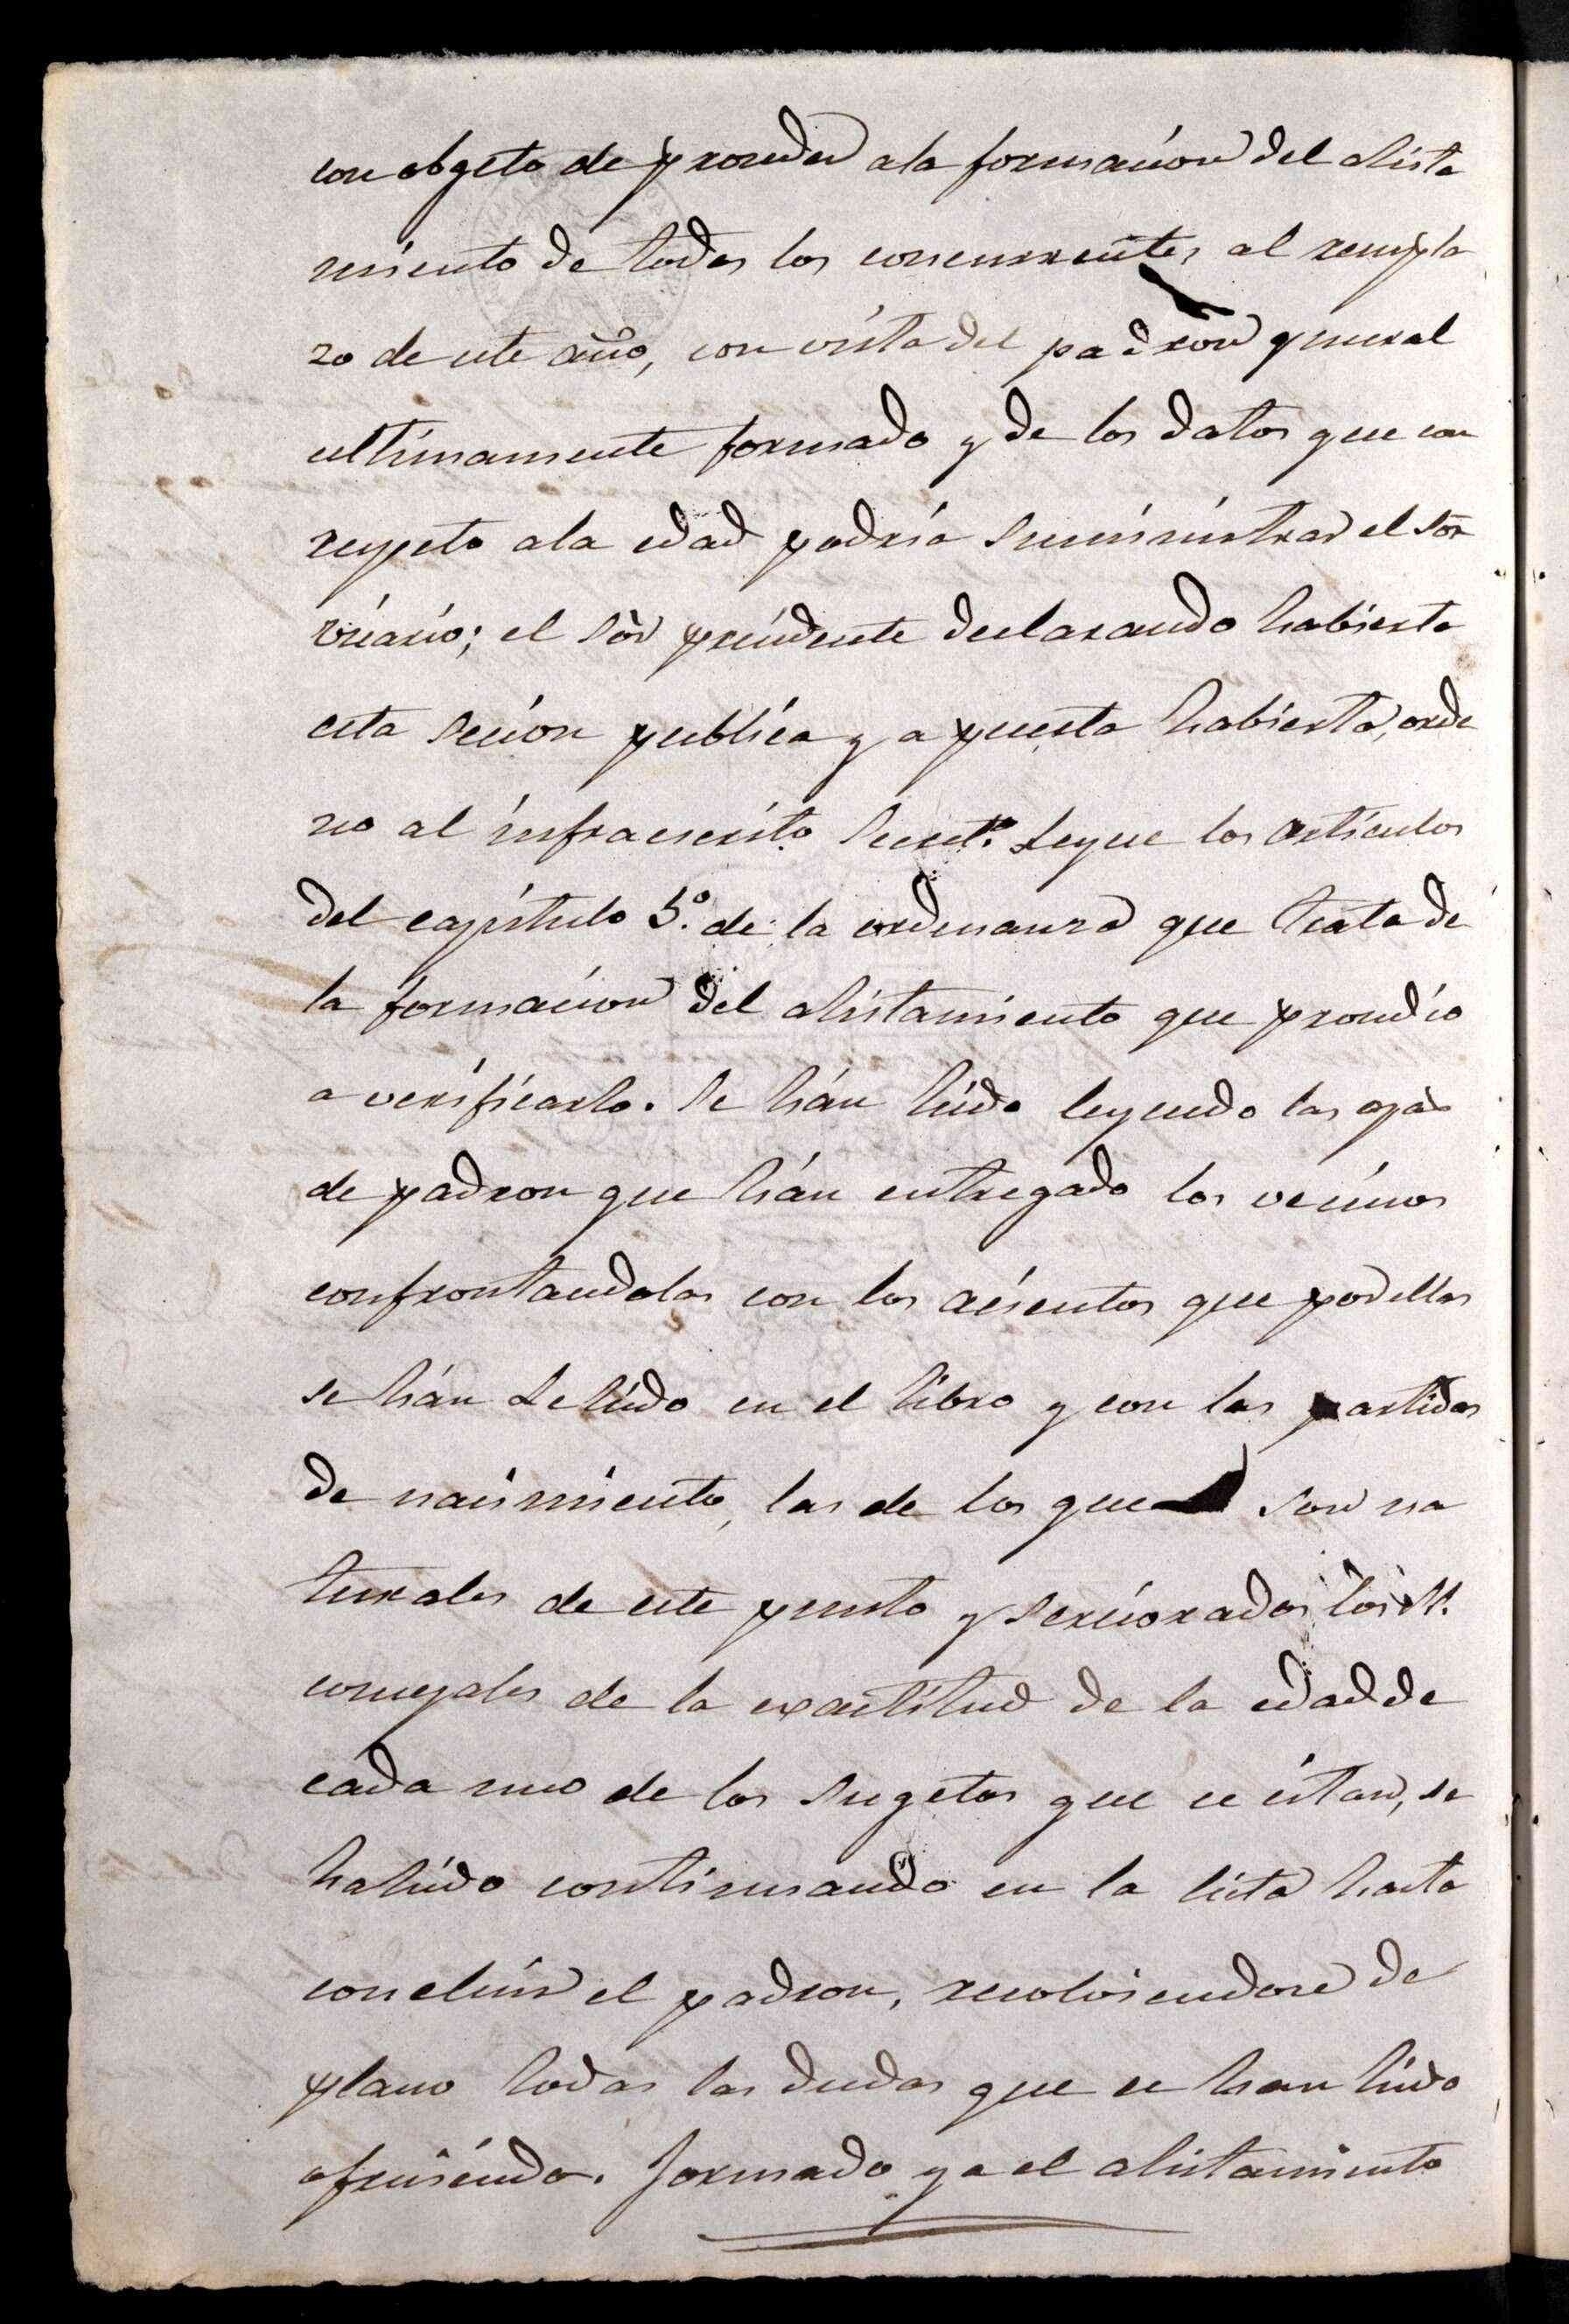 con obgeto de proceder ala formacion del alista
miento de todos los concurrentes al rempla
zo de este año, con vista del padron general
ultimamente formado y de los datos que con
respeto ala edad podria suministrar el Sor
vicario; el Sor presidente declarando habierta
esta secion publica y a puesta habierta, orde
no al infraescrito Secret.º leyese los articulos
del capitulo 5.º de la ordenanza que trata de
la formacion del alistamiento que procedio
a verificarlo. Se hán hido leyendo las ojas
de padron que hán entregado los vecinos
confrontandolas con los asientos que por ellas
se hán hido en el libro y con las partidas
de nacimiento, las de los que son na
turales de este punto y serciorados los SS.
concegales de la exactitud de la edad de
cada uno de los sugetos que se citan, se
ha hido continuando en la lista hasta
concluir el padron, resolviendose de
plano todas las dudas que se han hido
ofreciendo. Formado ya el alistamiento